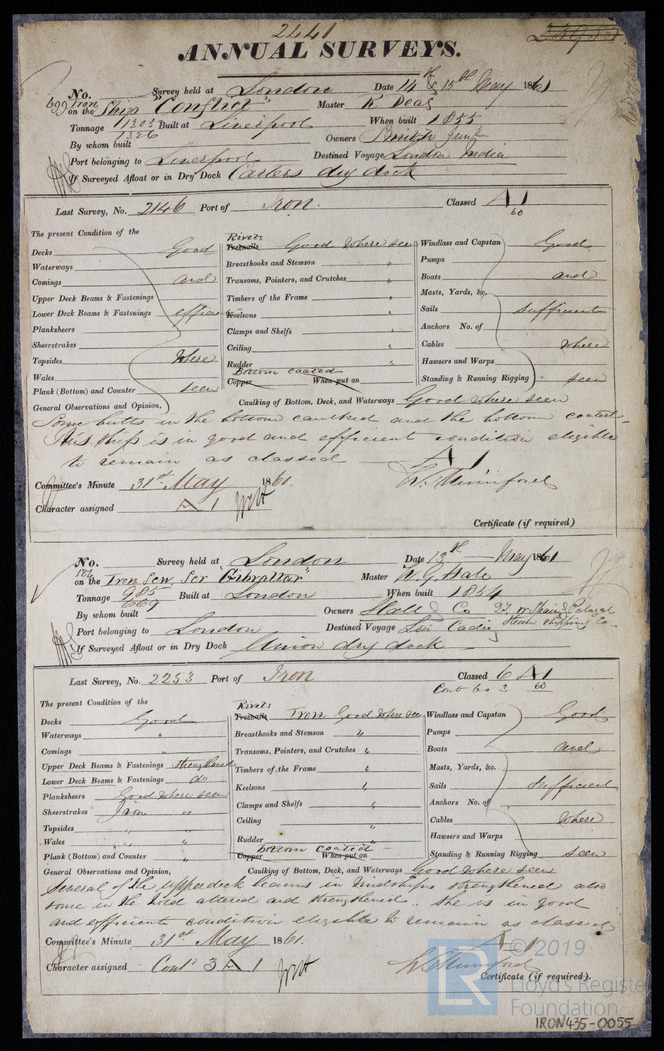 2441
ANNUAL SURVEYS.
No. Survey held at London Date 14th & 15th May 1861
699 Iron
on the Ship "Conflict" Master R Deas
Tonnage 1303 Built at Liverpool When built 1855
1326
By whom built Owners Smith Junr
Port belonging to Liverpool Destined Voyage London India
If Surveyed Afloat or in Dry Dock Carters dry dock
Last Survey, No. 2146 Port of Iron. Classed A1
60
The present Condition of the
Decks Good
Waterways
Comings and
Upper Deck Beams & Fastenings
Lower Deck Beams & Fastenings efficient
Planksheers
Sheerstrakes
Topsides where
Wales
Plank (Bottom) and Counter seen
Rivets
Treenails Good where seen
Breasthooks and Stemson "
Transoms, Pointers, and Crutches "
Timbers of the Frame "
Keelsons "
Clamps and Shelfs "
Ceiling "
Rudder "
Bottom coated
Copper When put on
Windlass and Capstan Good
Pumps
Boats and
Masts, Yards, &c.
Sails sufficient
Anchors No. of
Cables where
Hawsers and Warps
Standing & Running Rigging seen
General Observations and Opinion, Caulking of Bottom, Deck, and Waterways Good where seen
Some butts in the bottom caulked and the bottom coated.
This ship is in good and efficient condition eligible
to remain as classed A1
Committee's Minute 31st May 1861.
Character assigned A1
Certificate (if required)
No. Survey held at London Date 13th May 1861
184
on the Iron Scw. Ser "Gibraltar" Master W. G. Hale
Tonnage 985 Built at London When built 1854
669
By whom built Owners Hall & Co
Port belonging to London Destined Voyage Lon Cadiz
If Surveyed Afloat or in Dry Dock Union dry dock
Last Survey, No. 2253 Port of Iron Classed 6 A1
Contd to 3 60
The present Condition of the
Decks Good
Waterways "
Comings "
Upper Deck Beams & Fastenings strengthened
Lower Deck Beams & Fastenings do
Planksheers Good where seen
Sheerstrakes Iron "
Topsides "
Wales "
Plank (Bottom) and Counter "
Rivets
Treenails Iron Good where seen
Breasthooks and Stemson "
Transoms, Pointers, and Crutches "
Timbers of the Frame "
Keelsons "
Clamps and Shelfs "
Ceiling "
Rudder "
bottom coated
Copper When put on
Windlass and Capstan Good
Pumps
Boats and
Masts, Yards, &c.
Sails sufficient
Anchors No. of
Cables where
Hawsers and Warps
Standing & Running Rigging seen
General Observations and Opinion, Caulking of Bottom, Deck, and Waterways Good where seen
Several of the upperdeck beams in midships strengthened also
some in the hold altered and strengthened. She is in good
and efficient condition eligible to remain as classed
A1
Committee's Minute 31st May 1861.
Character assigned Contd 3 A1
Certificate (if required).
LR
© 2019
Lloyd's Register
Foundation
IRON435-0055